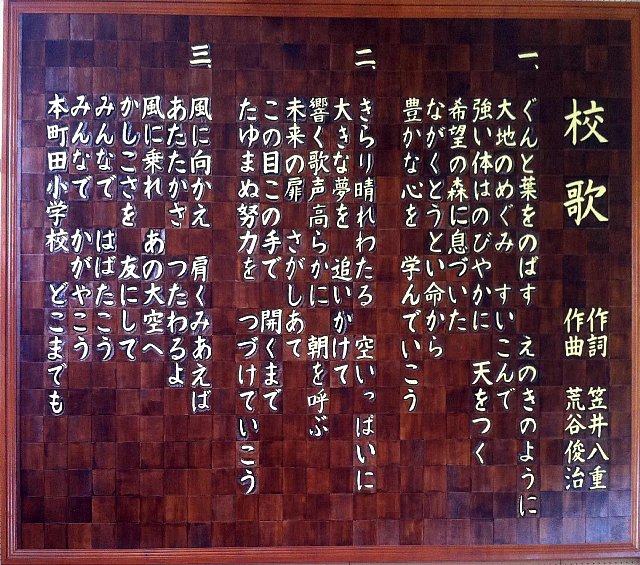 校歌
作詞 笠井八重
作曲 荒谷俊治
一、
ぐんと葉をのばす えのきのように
大地のめぐみ すいこんで
強い体はのびやかに 天をつく
希望の森に息づいた
ながくとうとい命から
豊かな心を 学んでいこう
二、
きらり晴れわたる 空いっぱいに
大きな夢を 追いかけて
響く歌声高らかに 朝を呼ぶ
未来の扉 さがしあて
この目この手で 開くまで
たゆまぬ努力を つづけていこう
三、
風に向かえ 肩くみあえば
あたたかさ つたわるよ
風に乗れ あの大空へ
かしこさを 友にして
みんなで はばたこう
みんなで かがやこう
本町田小学校 どこまでも